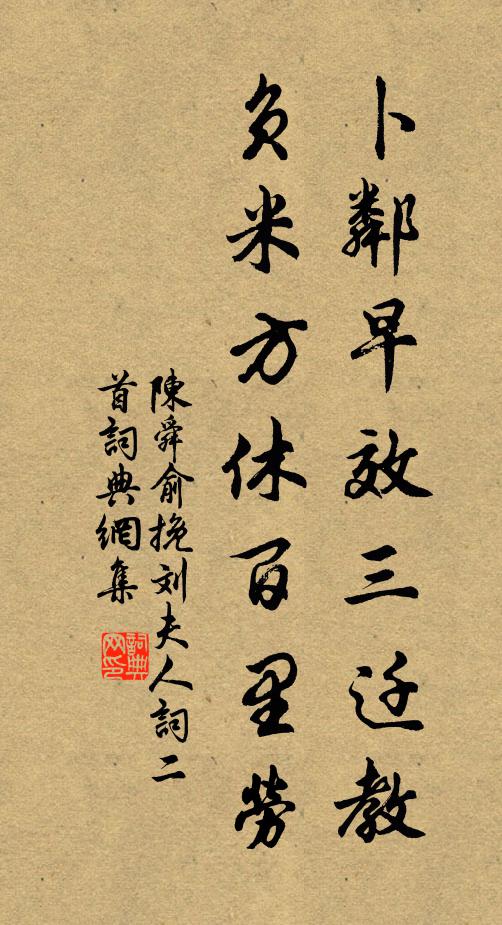 卜鄰早效三迁教
負米方休百里勞
陳舜俞挽刘夫人詞二
首詞典網集
詞典网印